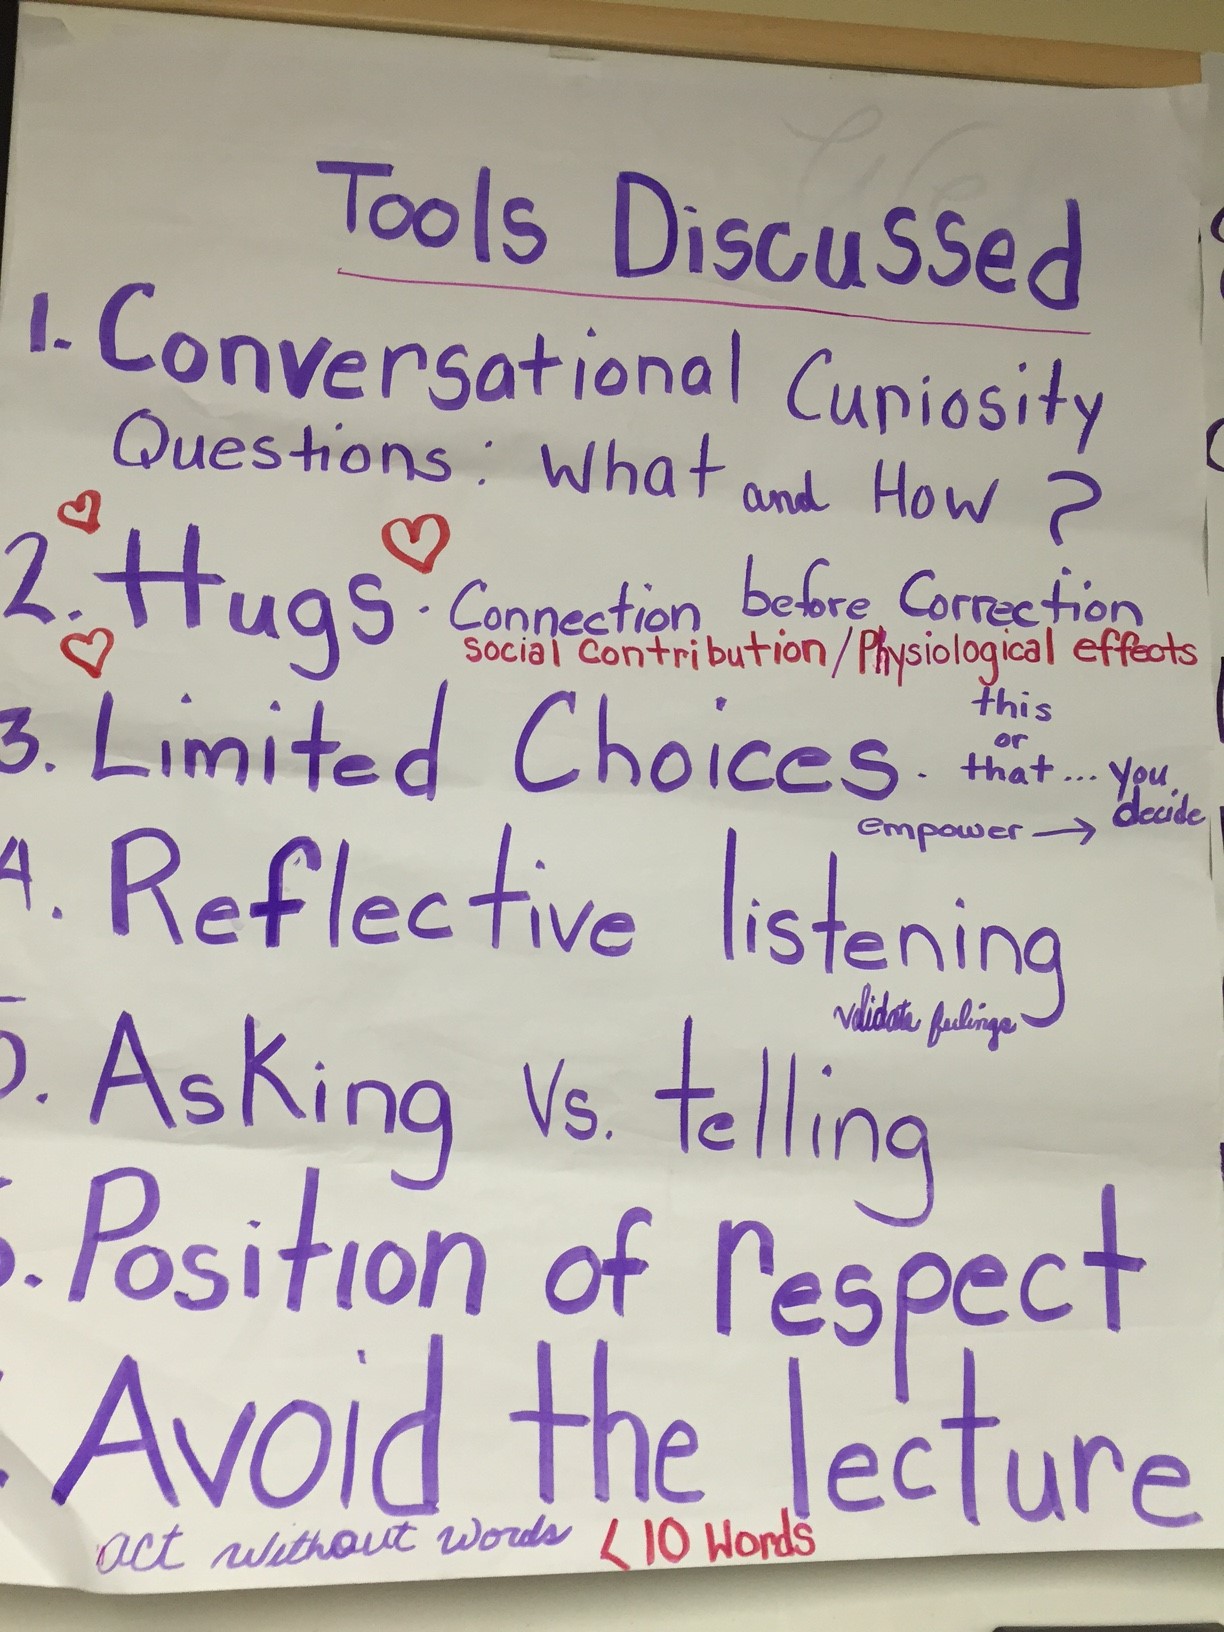 Tools Discussed
1. Conversational Curiosity
Questions: What and How?
2. Hugs. Connection before Correction
social contribution/Physiological effects
3. Limited Choices. this
or
that... you
decide
empower →
4. Reflective listening
validate feelings
5. Asking Vs. telling
6. Position of respect
Avoid the lecture
act without words < 10 Words